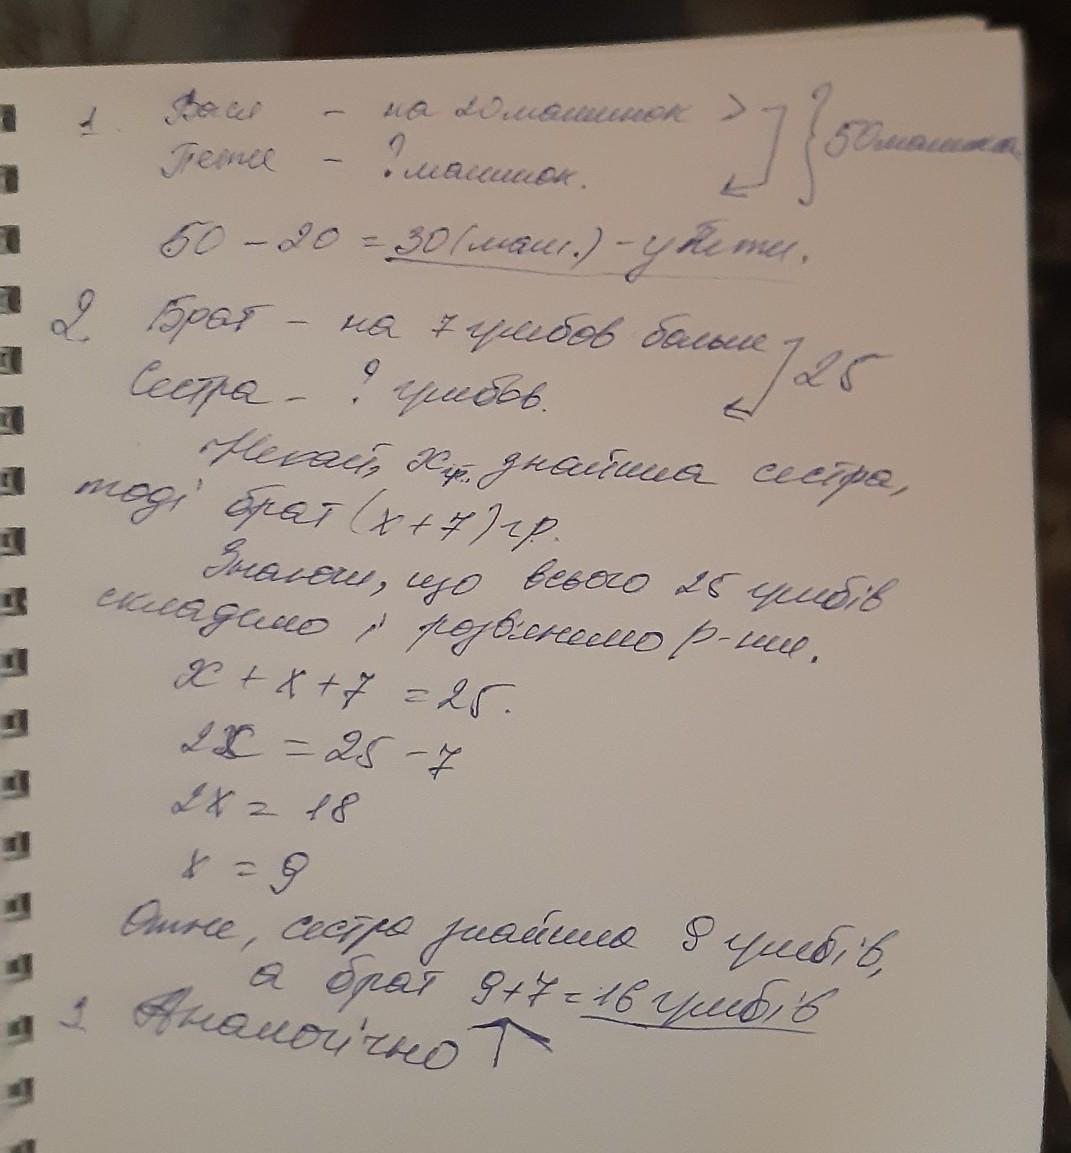 1. Вася - на 20 машинок > } 50 машинок
Петя - ? машинок.
50 - 20 = 30 (маш.) - у Пети.
2. Брат - на 7 грибов больше ] 25
Сестра - ? грибов.
Нехай, x гр. знайшла сестра,
тоді брат (x + 7) гр.
Знаючи, що всього 25 грибів
складемо і розв'яжемо р-ня.
x + x + 7 = 25.
2x = 25 - 7
2x = 18
x = 9
Отже, сестра знайшла 9 грибів,
а брат 9 + 7 = 16 грибів
3. Аналогічно ↑